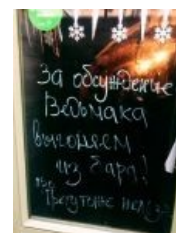 За обсуждение
Ведьмака
выгоняем
из бара!